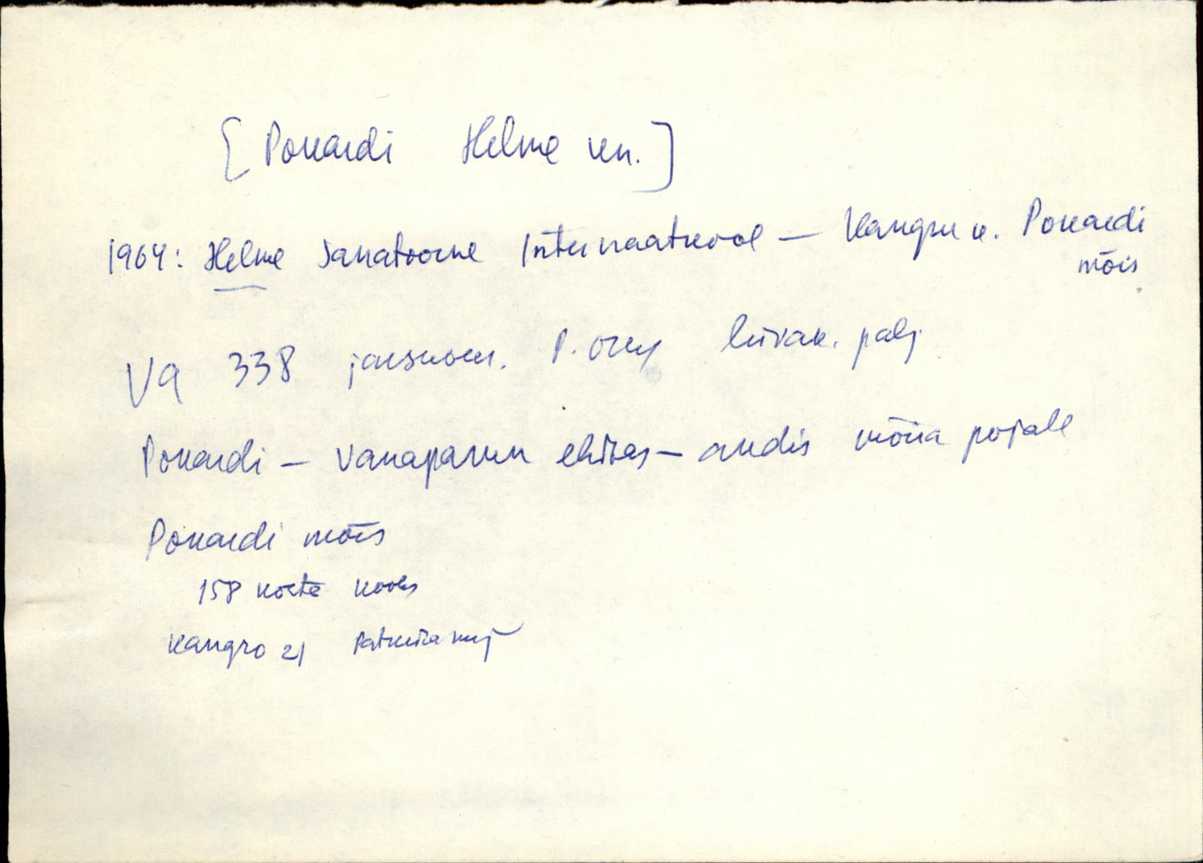 [Pokardi Helme khn.]
1964: Helme Sanatoorne Internaatkool — Kangru k. Pokardi
mõis
VA 338 P. org liivak. palj
Pokardi — vanapagan ehitas — andis mõisa pojale
Pokardi mõis
158 kooli
Kangro 21